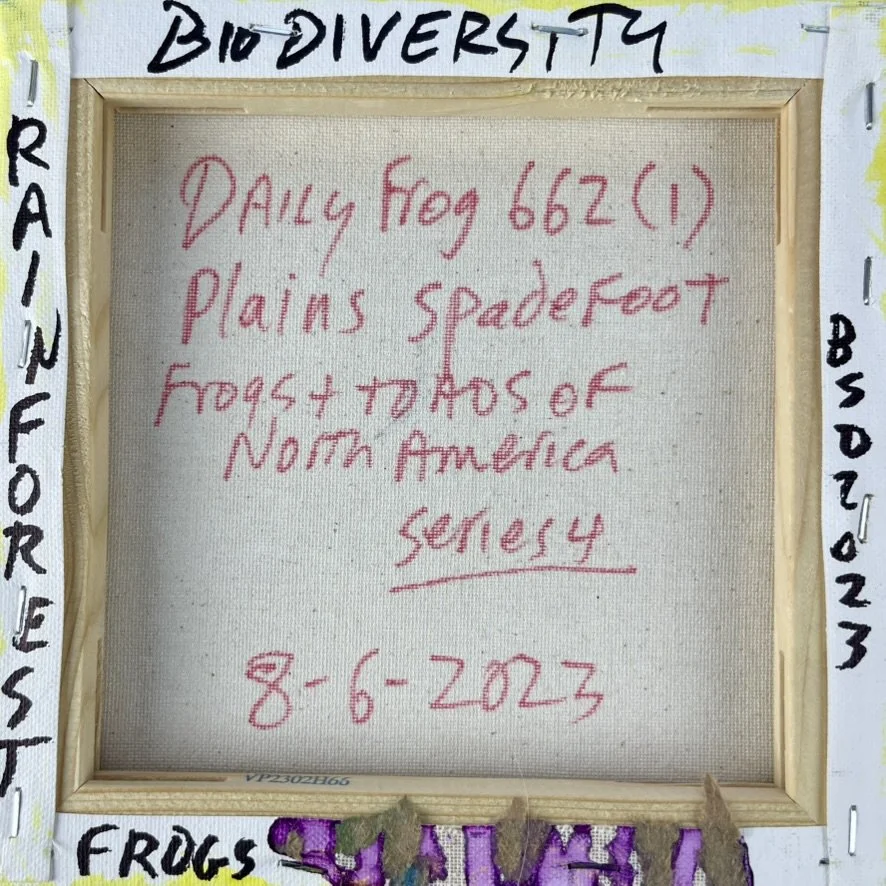 BIODIVERSITY
RAINFOREST
DAILY Frog 662 (1)
Plains spadefoot
Frogs + tOADS OF
North America
series 4
8-6-2023
BSD2023
VP2302H66
FROGS